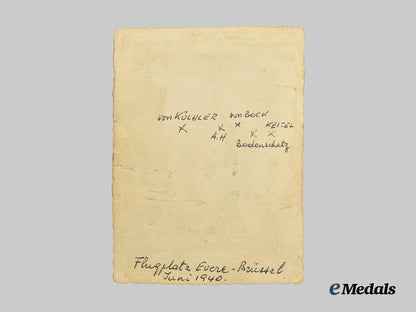 von KÜCHLER von BOCK
KEITEL
A.H
Bodenschatz
Flugplatz Evere - Brüssel
Juni 1940.
eMedals